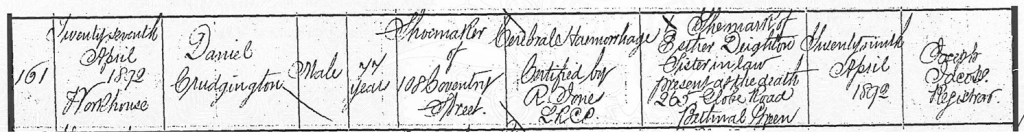 161
Twenty seventh
April
1892
Workhouse
Daniel
Crudgington
Male
77
Years
Shoemaker
of
108 Coventry
Street
Cerebral Haemorrhage
Certified by
R. Done
L.R.C.P.
X The mark of
Esther Deighton
Sister in law
present at the death
265 Globe Road
Bethnal Green
April
1892
Joseph
Jacobs
Registrar